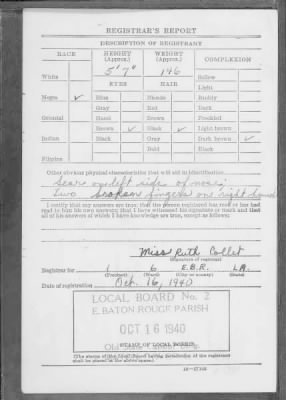 REGISTRAR'S REPORT
DESCRIPTION OF REGISTRANT
RACE HEIGHT (Approx.) WEIGHT (Approx.) COMPLEXION
5' 7" 146
White EYES HAIR Sallow
Light
Negro ✓ Blue Blonde Ruddy
Gray Red Dark
Oriental Hazel Brown Freckled
Brown ✓ Black ✓ Light brown
Indian Black Gray Dark brown ✓
Bald Black
Filipino
Other obvious physical characteristics that will aid in identification
Scar on left side of nose;
two broken fingers on right hand
I certify that my answers are true; that the person registered has read or has had
read to him his own answers; that I have witnessed his signature or mark and that
all of his answers of which I have knowledge are true, except as follows:
Miss Ruth Collet
(Signature of registrar)
Registrar for 1 6 E.B.R. LA.
(Precinct) (Ward) (City or county) (State)
Date of registration Oct. 16, 1940
LOCAL BOARD No. 2
E. BATON ROUGE PARISH
OCT 16 1940
STAMP OF LOCAL BOARD
(The stamp of the Local Board having jurisdiction of the registrant
shall be placed in the above space.)